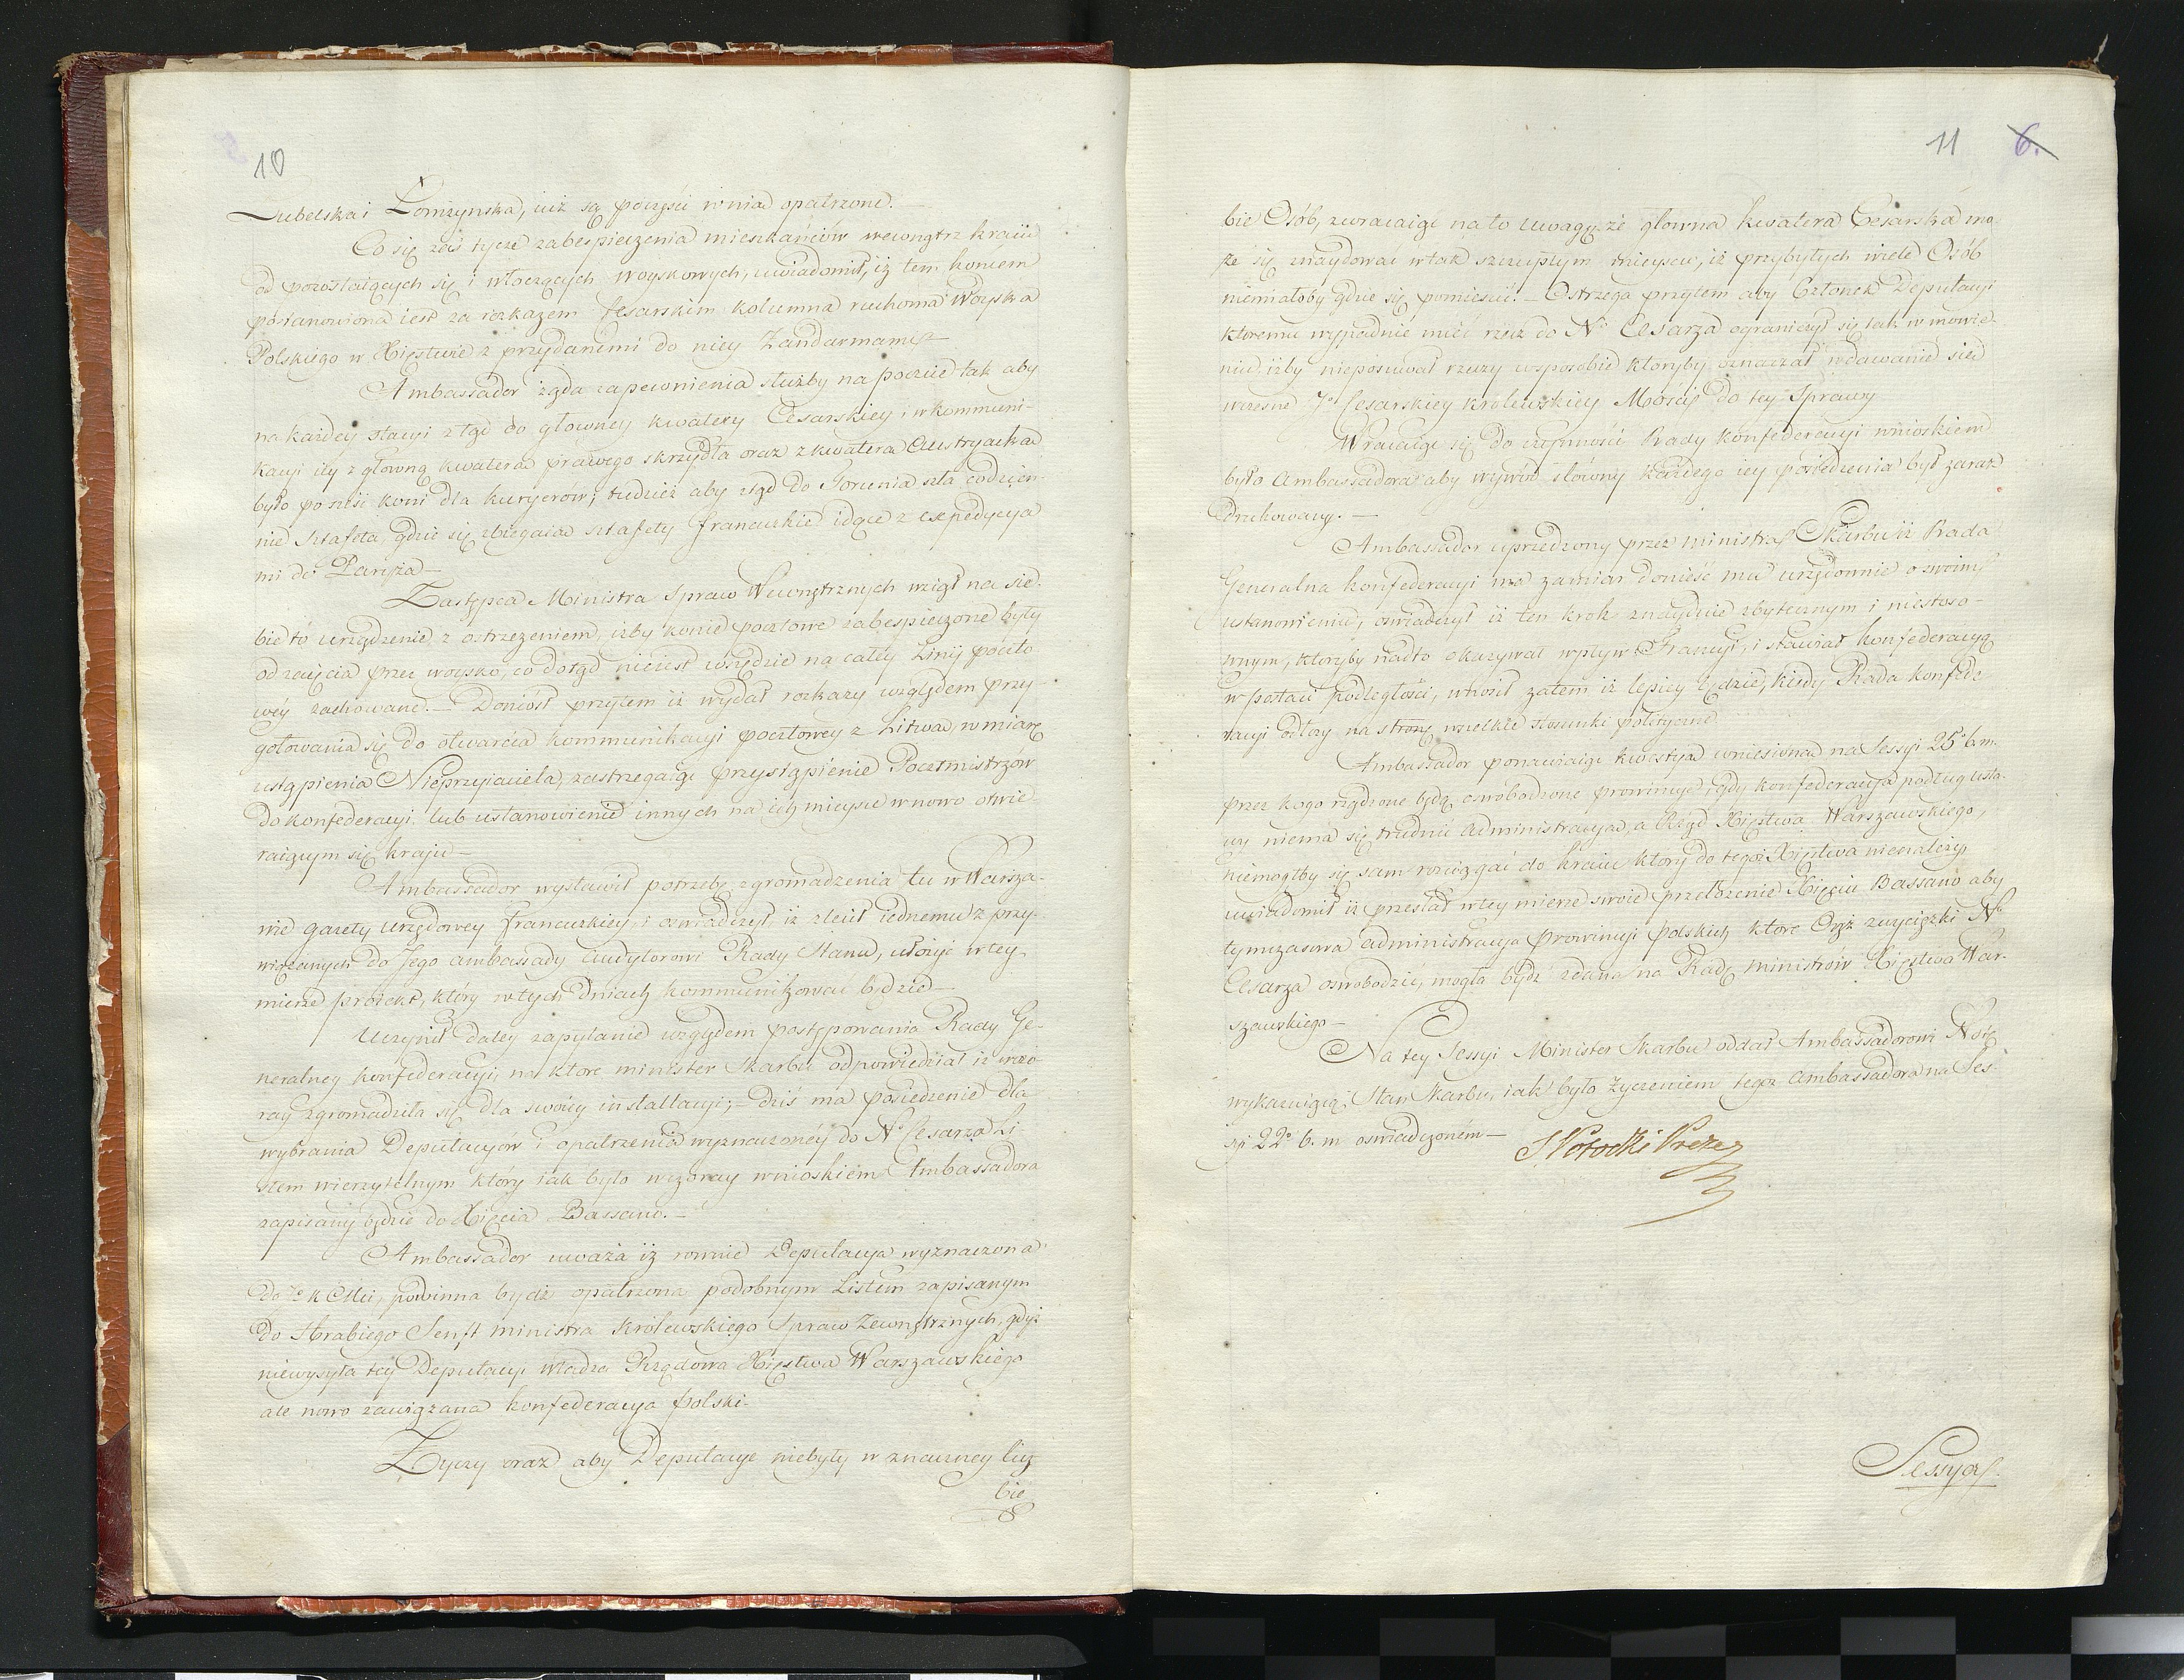 10
Lubelska i Lomżynska, iuż są poczęści w nia opatrzone.—
Co się zaś tycze zabespieczenia mieszkańców wewnątrz kraiu
od pozostaiących się i włoczących woyskowych, uwiadomił, iż tem koncem
postanowiona iest za rozkazem Cesarskim kolumna ruchoma Woyska
Polskiego w Xięstwie z przydanemi do niey Żandarmami—
Ambassador żąda zapewnienia służby na poczcie tak aby
na każdey stacyi ztąd do głowney kwatery Cesarskiey i w kommuni-
kacyi tey z główną kwaterą prawego skrzydła oraz z kwaterą Austryacką
było po sześć koni dla kuryerów; tudzież aby ztąd do Torunia szła codzien-
nie sztafeta, gdzie się zbiegaią sztafety francuzkie idące z expedycya
mi do Paryża—
Zastępca Ministra Spraw Wewnętrznych wziął na sie-
bie to urządzenie z ostrzezeniem, iżby konie pocztowe zabespieczone były
od zaięcia przez woysko, co dotąd nieiest wszędzie na całey Linij poczto
wéy zachowane.— Doniósł przytem iż wydał rozkazy względem przy-
gotowania się do otwarcia kommunikacyi pocztowey z Litwą, w miarę
ustąpienia Nieprzyiaciela, zastrzegaiąc przystąpienie Pocztmistrzów
do konfederacyi, lub ustanowienie innych na ich mieysce w nowo otwie-
raiącym się kraju—
Ambassador wystawił potrzebę zgromadzenia tu w Warsza-
wie gazety urzędowey francuzkiey, i oswiadczył iż zlecił iednemu z przy-
wiązanych do Jego ambassady Audytorowi Rady Stanu, ułożyć w tey
mierze proiekt, który w tych dniach kommunikować będzie—
Uczynił daley zapytanie względem postępowania Rady Ge-
neralney konfederacyi, na ktore minister Skarbu odpowiedział iż wczo
ray zgromadziła się dla swoiey installacyi;— dziś ma posiedzenie dla
wybrania Deputacyow i opatrzenia wyznaczonéy do No Cesarza Li-
stem wierzytelnym który iak było wczoray wnioskiem Ambassadora
zapisany będzie do Xięcia Bassano.—
Ambassador uważa iż rownie Deputacya wyznaczona
do Jo K Mci, powinna bydź opatrzona podobnym Listem zapisanym
do Hrabiego Senft ministra Królewskiego Spraw Zewnętrznych, gdyż
niewysyła tey Deputacyi Władza Rządowa Xięstwa Warszawskiego
ale nowo zawiązana konfederacya Polski.
Życzy oraz aby Deputacye niebyły w znaczney licz
bie
11 6.
bie Osób, zwracaiąc na to uwagę, że głowna kwatera Cesarska mo-
że się znaydować w tak szczupłym mieyscu, iż przybyłych wiele Osób
niemiałoby gdzie się pomieścić.— Ostrzega przytem aby Członek Deputacyi
ktoremu wypadnie mieć rzecz do No Cesarza ograniczył się tak w mowie-
niu, iżby nieposuwał rzeczy w sposobie któryby oznaczał wdawanie się
wczesne Jo Cesarskiey Krolewskiey Mości do tey Sprawy
Wracaiąc się do czynności Rady konfederacyi wnioskiem
było Ambassadora aby wywód słówny każdego iey posiedzenia był zaraz
drukowany.—
Ambassador uprzedzony przez ministra Skarbu iż Rada
Generalna konfederacyi ma zamiar donieść mu urzędownie o swoim
ustanowieniu, oświadczył iż ten krok znayduie zbytecznym i niestoso-
wnym, któryby nadto okazywał wpływ Francyi, i stawiał konfederacyą
w postaci podległości, wnosił zatem iż lepiey będzie, kiedy Rada konfede
racyi odłoży na stronę wszelkie stosunki polityczne
Ambassador ponawiaiąc kwestyą wniesioną na Sessyi 25o b.m.
przez kogo rządzone będą oswobodzone prowincye, gdy konfederacya podług usta-
wy niema się trudnić Administracyą, a Rząd Xięstwa Warszawskiego,
niemogłby się sam rozciągać do kraiu który do tegoż Xięstwa nienależy,
uwiadomił iż przesłał w tey mierze swoie przełożenie Xięciu Bassano aby
tymczasowa administracya prowincyi polskich ktore Oręż zwycięzki No
Cesarza oswobodzi, mogła bydź zdana na Radę ministrów Xięstwa War-
szawskiego—
Na tey Sessyi Minister Skarbu oddał Ambassadorowi Notę
wykazuiącą Stan Skarbu, iak było życzeniem tegoż Ambassadora na Ses-
syi 22o b. m oswiadczoném—
S Potocki Prezes
Sessya